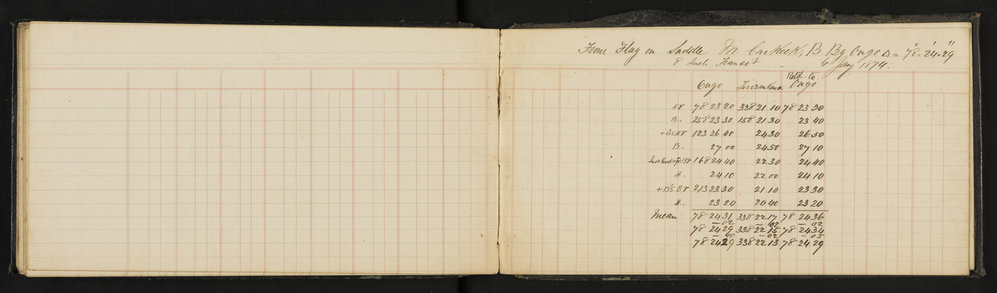 From Flag on Saddle Mt B By Ongo Δ = 78° 24' 29"
8 Inch Transit - 6 Jany 1874.
Ongo Redd to Ongo
AV 78 23 20 338 21 10 78 23 30
B. 258 23 30 158 21 30 23 40
+45 AV 123 26 40 24 30 26 50
B. 27 00 24 50 27 10
168 24 40 22 30 24 40
A. 24 10 22 00 24 10
213 23 30 21 10 23 30
A. 23 20 20 40 23 20
Mean 78 24 31 338 22 17 78 24 36
- 02 - 02 - 02
78 24 29 338 22 15 78 24 34
- 00 - 02 - 05
78 24 29 338 22 13 78 24 29